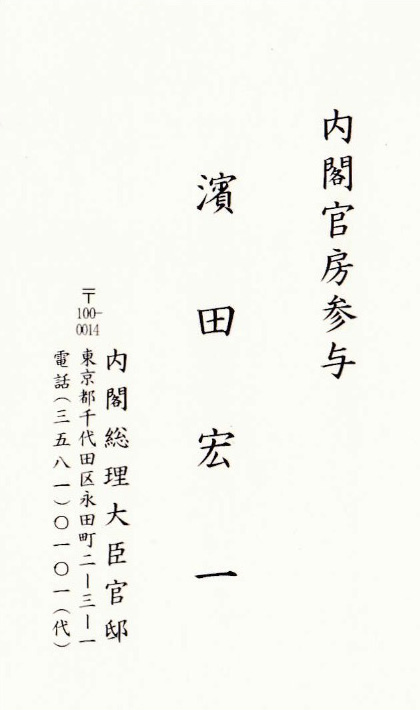 内閣官房参与
濱田宏一
内閣総理大臣官邸
〒100-0014
東京都千代田区永田町二ー三ー一
電話(三五八一)〇一〇一(代)